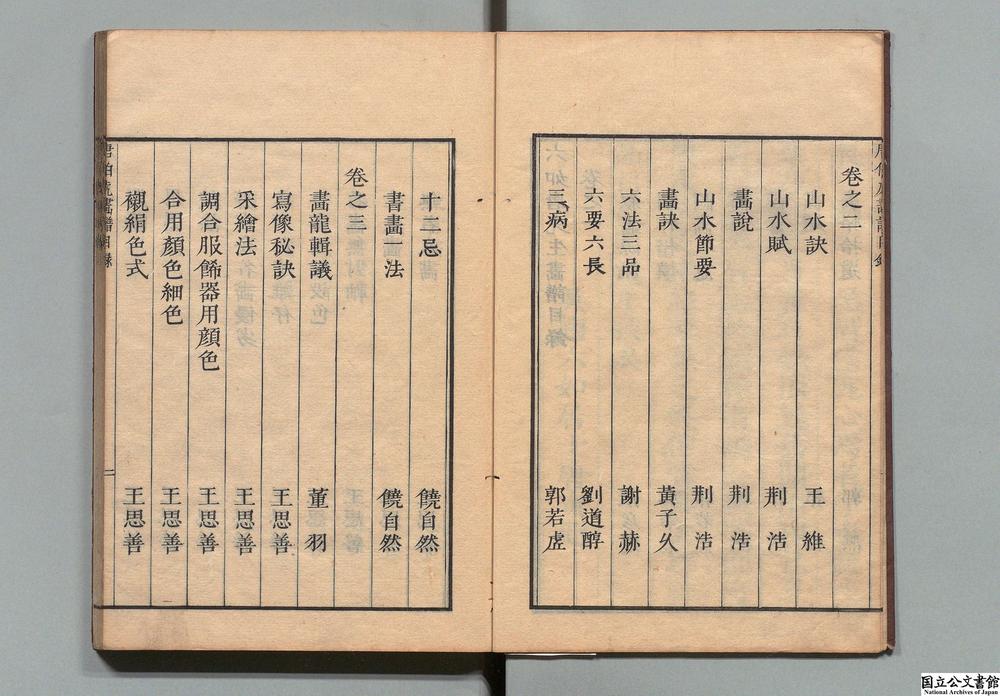 卷之二
山水訣 王維
山水賦 荆浩
畫說 荆浩
山水節要 荆浩
畫訣 黃子久
六法三品 謝赫
六要六長 劉道醇
三病 郭若虚
十二忌 饒自然
書畫一法 饒自然
卷之三
畫龍輯議 董羽
寫像秘訣 王思善
采繪法 王思善
調合服飾器用顔色 王思善
合用顏色細色 王思善
襯絹色式 王思善
唐伯虎畫譜目錄
二
国立公文書館
National Archives of Japan